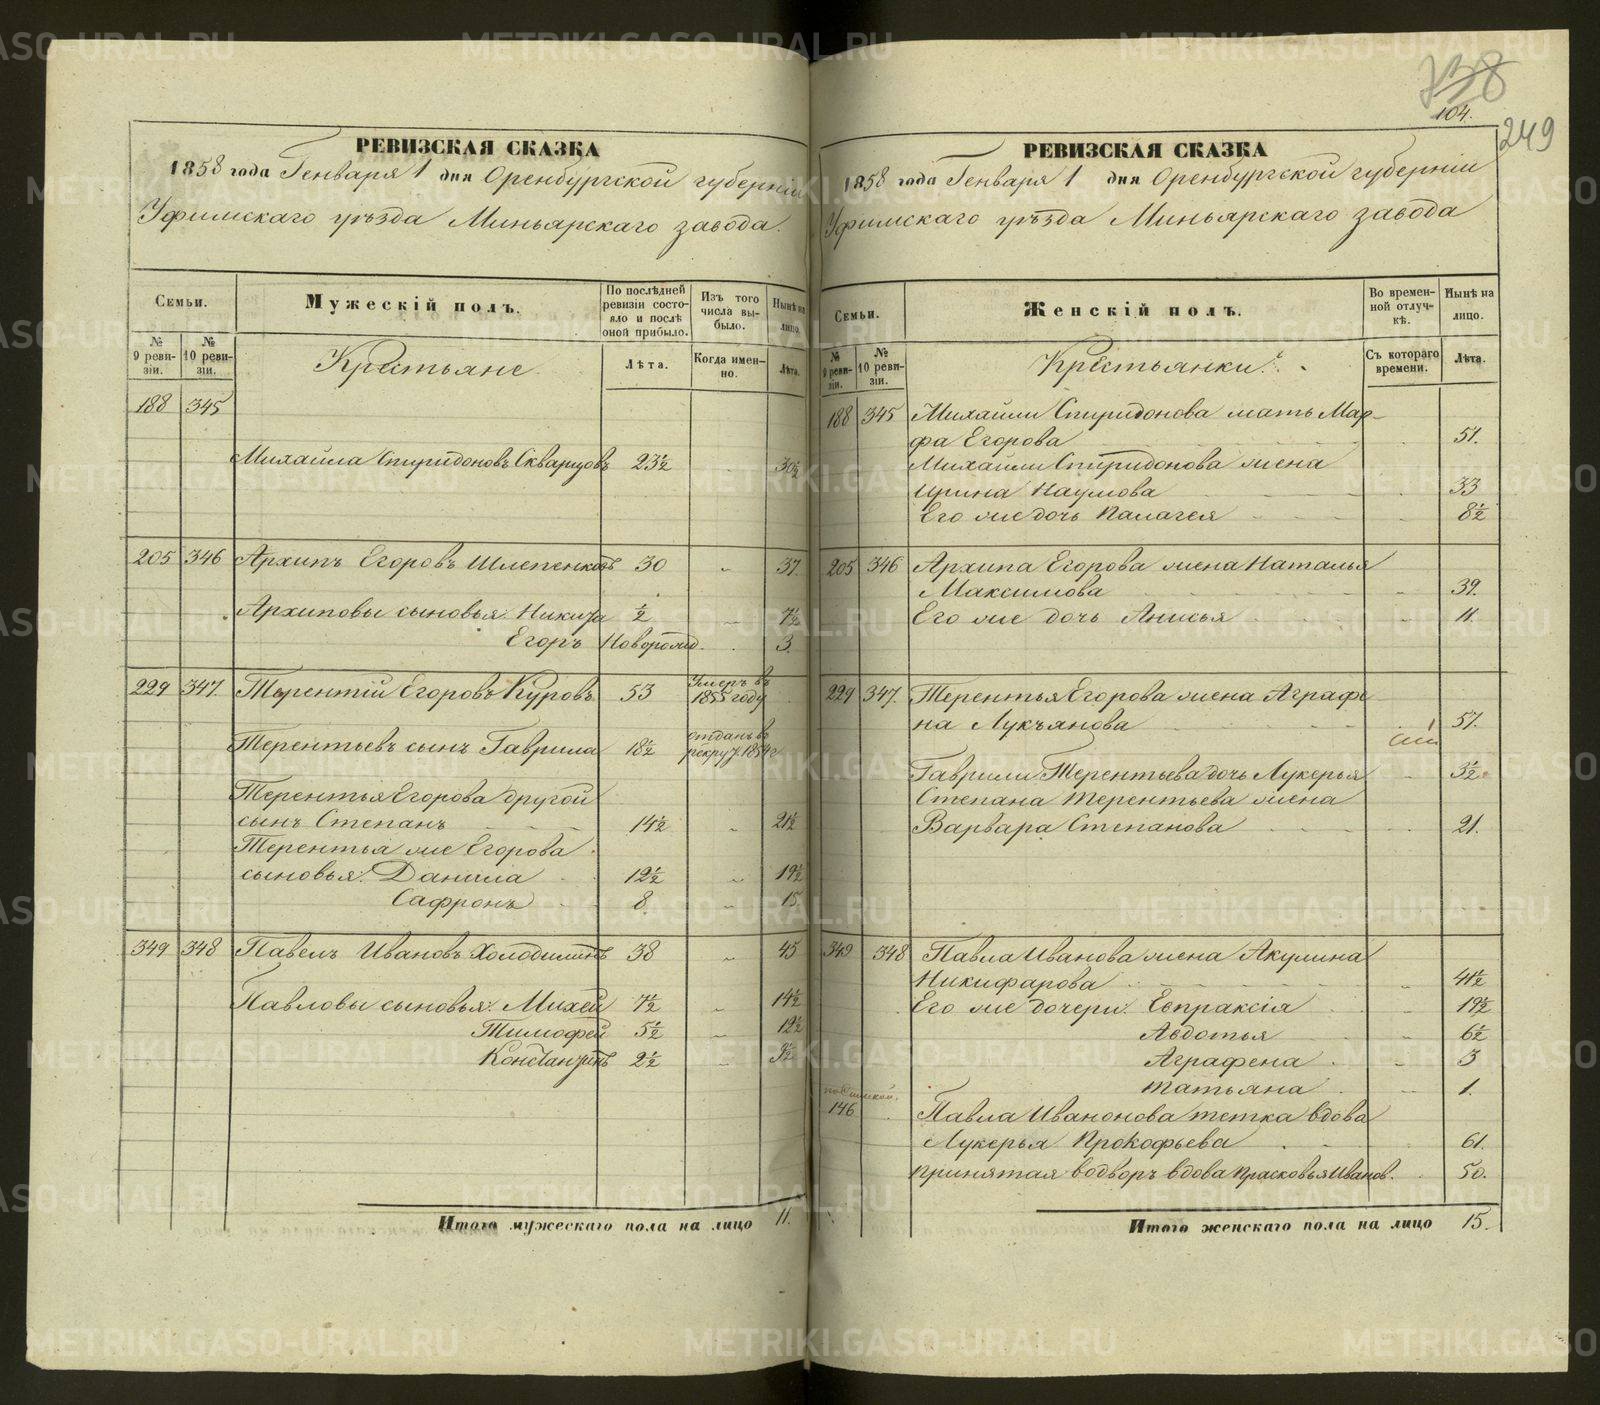 738
104.
249
РЕВИЗСКАЯ СКАЗКА
1858 года Генваря 1 дня Оренбургской губерніи
Уфимскаго уѣзда Миньярскаго завода.
Семьи.
Мужескій полъ.
По послѣдней ревизіи состояло и послѣ оной прибыло.
Изъ того числа выбыло.
Нынѣ на лицо.
№ 9 ревизіи.
№ 10 ревизіи.
Крестьяне
Лѣта.
Когда именно.
Лѣта.
188 345
Михайла Спиридоновъ Скварцовъ 23½ 30½
205 346 Архипъ Егоровъ Шлепенковъ 30 37.
Архиповы сыновья: Никита ½ 7½
Егоръ Новорожд. 3.
229 347. Терентій Егоровъ Куровъ 53 Умеръ въ 1855 году
Терентьевъ сынъ Гаврила 18½ отданъ въ рекрут. 1854 г
Терентья Егорова другой
сынъ Степанъ 14½ 21½
Терентья же Егорова
сыновья: Данила 12½ 19½
Сафронъ 8 15.
349 348 Павелъ Ивановъ Холодилинъ 38 45
Павловы сыновья: Михей 7½ 14½
Тимофей 5½ 12½
Константинъ 2½ 9½
Итого мужескаго пола на лицо 11.
РЕВИЗСКАЯ СКАЗКА
1858 года Генваря 1 дня Оренбургской губерніи
Уфимскаго уѣзда Миньярскаго завода
Семьи.
Женскій полъ.
Во временной отлучкѣ.
Нынѣ на лицо.
№ 9 ревизіи.
№ 10 ревизіи.
Крестьянки.
Съ котораго времени.
Лѣта.
188 345 Михайлы Спиридонова мать Мар-
фа Егорова 57.
Михайлы Спиридонова жена
Ирина Наумова 33
Его же дочь Палагея 8½
205 346 Архипа Егорова жена Наталья
Максимова 39.
Его же дочь Анисья 11.
229 347. Терентья Егорова жена Аграфе
на Лукьянова 57.
Гаврилы Терентьева дочь Лукерья 3½
Степана Терентьева жена
Варвара Степанова 21.
349 348 Павла Иванова жена Акулина
Никифарова 41½
Его же дочери: Евпраксія 19½
Авдотья 6½
Аграфена 3
Татьяна 1.
146 Павла Иванонова тетка вдова
Лукерья Прокофьева 61.
Принятая водворъ вдова Прасковья Иванов. 50.
Итого женскаго пола на лицо 15.
METRIKI.GASO-URAL.RU